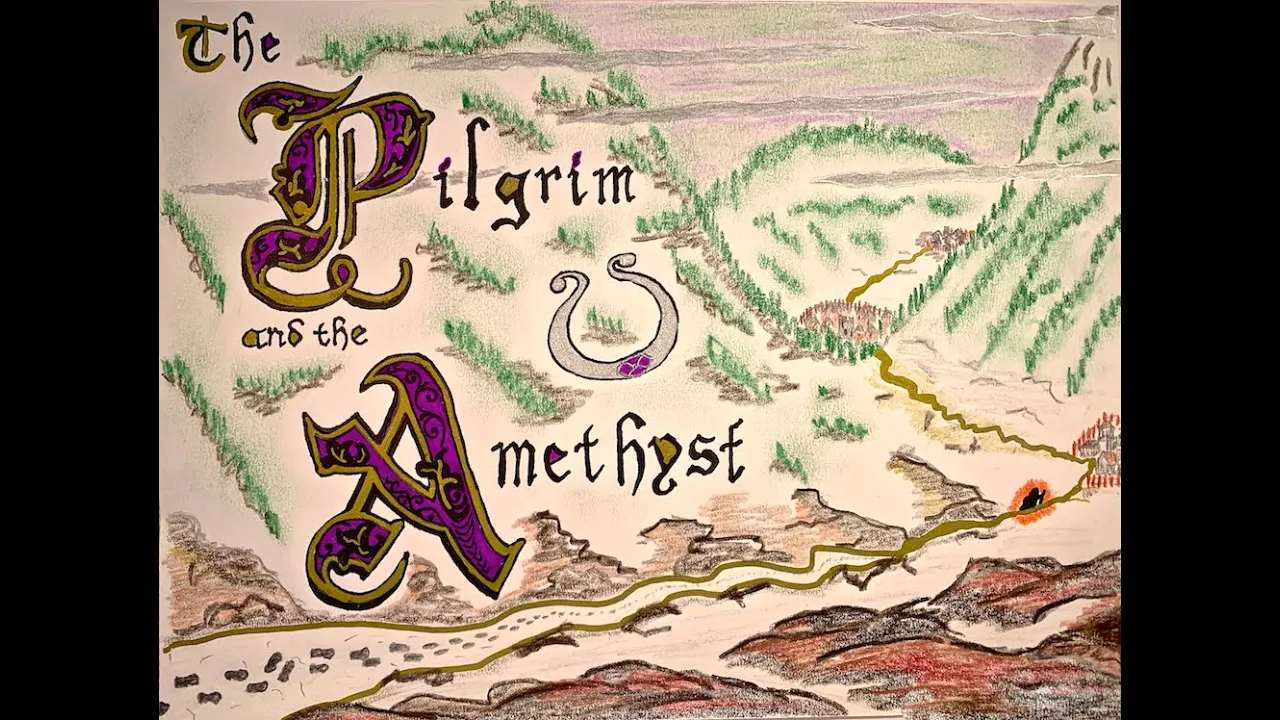 The
Pilgrim
and the
Amethyst